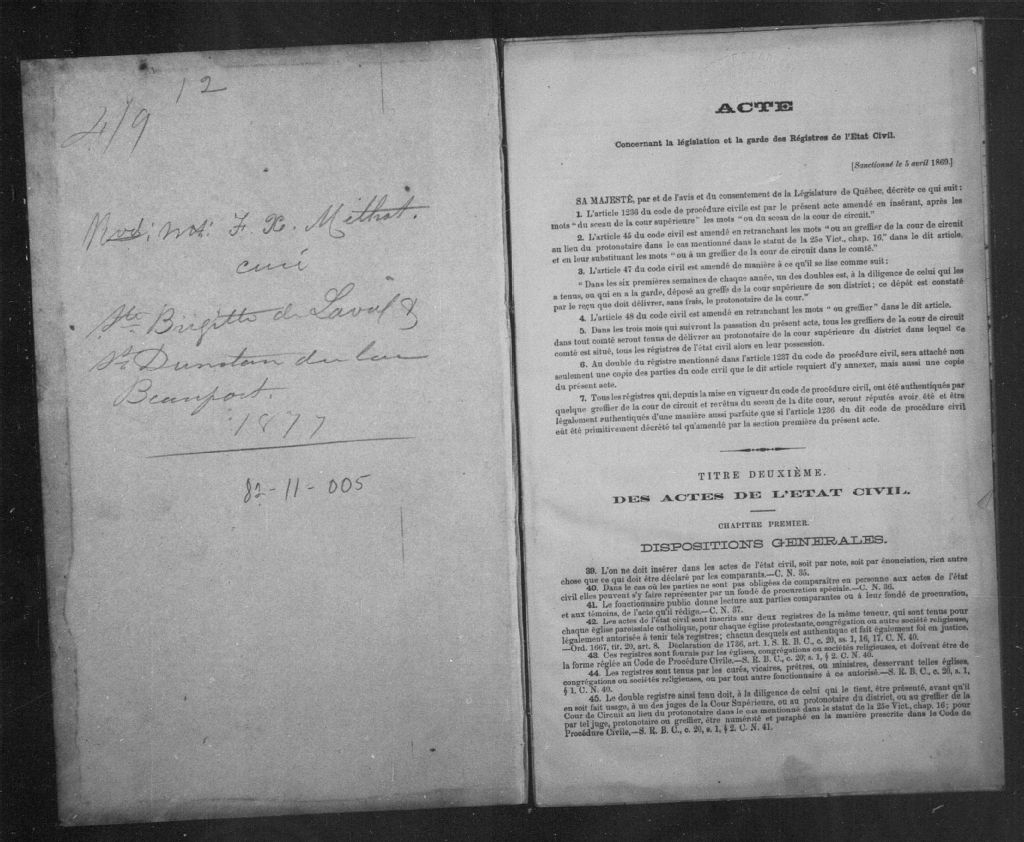 12
4/9
Rvd: Mt: F. X. Méthot.
curé
Ste. Brigitte de Laval &
St. Dunstan du lac
Beauport.
1877
82-11-005
ACTE
Concernant la législation et la garde des Régistres de l'Etat Civil.
[Sanctionné le 5 avril 1869.]
SA MAJESTÉ, par et de l'avis et du consentement de la Législature de Québec, décrète ce qui suit:
1. L'article 1236 du code de procédure civile est par le présent acte amendé en insérant, après les
mots "du sceau de la cour supérieure" les mots "ou du sceau de la cour de circuit."
2. L'article 45 du code civil est amendé en retranchant les mots "ou au greffier de la cour de circuit
au lieu du protonotaire dans le cas mentionné dans le statut de la 25e Vict., chap. 16," dans le dit article,
et en leur substituant les mots "ou à un greffier de la cour de circuit dans le comté."
3. L'article 47 du code civil est amendé de manière à ce qu'il se lise comme suit:
"Dans les six premières semaines de chaque année, un des doubles est, à la diligence de celui qui les
a tenus, ou qui en a la garde, déposé au greffe de la cour supérieure de son district; ce dépôt est constaté
par le reçu que doit délivrer, sans frais, le protonotaire de la cour."
4. L'article 48 du code civil est amendé en retranchant les mots "ou greffier" dans le dit article.
5. Dans les trois mois qui suivront la passation du présent acte, tous les greffiers de la cour de circuit
dans tout comté seront tenus de délivrer au protonotaire de la cour supérieure du district dans lequel ce
comté est situé, tous les régistres de l'état civil alors en leur possession.
6. Au double du régistre mentionné dans l'article 1237 du code de procédure civil, sera attaché non
seulement une copie des parties du code civil que le dit article requiert d'y annexer, mais aussi une copie
du présent acte.
7. Tous les régistres qui, depuis la mise en vigueur du code de procédure civil, ont été authentiqués par
quelque greffier de la cour de circuit et revêtus du sceau de la dite cour, seront réputés avoir été et être
légalement authentiqués d'une manière aussi parfaite que si l'article 1236 du dit code de procédure civil
eût été primitivement décrété tel qu'amendé par la section première du présent acte.
TITRE DEUXIÈME.
DES ACTES DE L'ETAT CIVIL.
CHAPITRE PREMIER.
DISPOSITIONS GENERALES.
39. L'on ne doit insérer dans les actes de l'état civil, soit par note, soit par énonciation, rien autre
chose que ce qui doit être déclaré par les comparants.—C. N. 35.
40. Dans le cas où les parties ne sont pas obligées de comparaître en personne aux actes de l'état
civil elles peuvent s'y faire représenter par un fondé de procuration spéciale.—C. N. 36.
41. Le fonctionnaire public donne lecture aux parties comparantes ou à leur fondé de procuration,
et aux témoins, de l'acte qu'il rédige.—C. N. 37.
42. Les actes de l'état civil sont inscrits sur deux registres de la même teneur, qui sont tenus pour
chaque église paroissiale catholique, pour chaque église protestante, congrégation ou autre société religieuse,
légalement autorisée à tenir tels registres; chacun desquels est authentique et fait également foi en justice.
—Ord. 1667, tit. 20, art. 8. Déclaration de 1736, art. 1. S. R. B. C., c. 20, ss. 1, 16, 17. C. N. 40.
43. Ces registres sont fournis par les églises, congrégations ou sociétés religieuses, et doivent être de
la forme réglée au Code de Procédure Civile.—S. R. B. C., c. 20; s. 1, § 2. C. N. 40.
44. Les registres sont tenus par les curés, vicaires, prêtres, ou ministres, desservant telles églises,
congrégations ou sociétés religieuses, ou par tout autre fonctionnaire à ce autorisé.—S. R. B. C., c. 20, s. 1,
§ 1. C. N. 40.
45. Le double registre ainsi tenu doit, à la diligence de celui qui le tient, être présenté, avant qu'il
en soit fait usage, à un des juges de la Cour Supérieure, ou au protonotaire du district, ou au greffier de la
Cour de Circuit au lieu du protonotaire dans le cas mentionné dans le statut de la 25e Vict., chap. 16; pour
par tel juge, protonotaire ou greffier, être numéroté et paraphé en la manière prescrite dans le Code de
Procédure Civile.—S. R. B. C., c. 20, s. 1, § 2. C. N. 41.